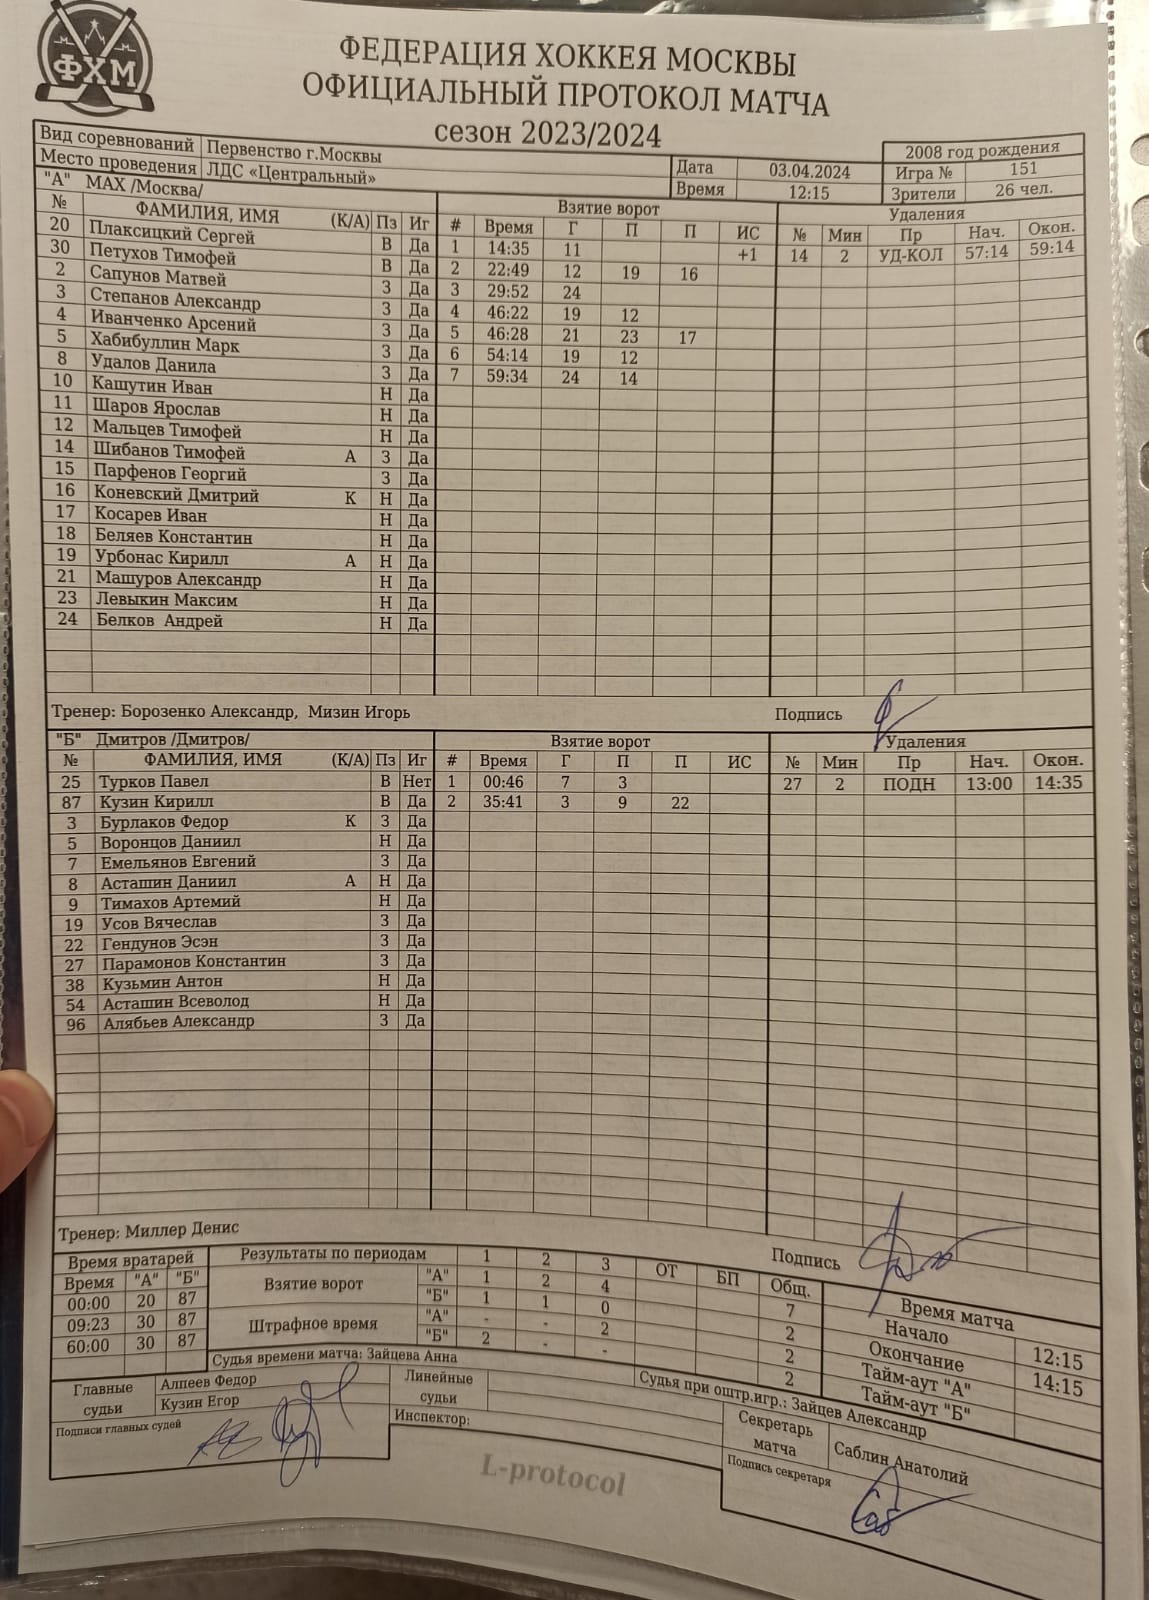 ФХМ
ФЕДЕРАЦИЯ ХОККЕЯ МОСКВЫ
ОФИЦИАЛЬНЫЙ ПРОТОКОЛ МАТЧА
сезон 2023/2024
Вид соревнований Первенство г.Москвы 2008 год рождения
Место проведения ЛДС «Центральный» Дата 03.04.2024 Игра № 151
Время 12:15 Зрители 26 чел.
"А" МАХ /Москва/ Взятие ворот Удаления
№ ФАМИЛИЯ, ИМЯ (К/А) Пз Иг # Время Г П П ИС № Мин Пр Нач. Окон.
20 Плаксицкий Сергей В Да 1 14:35 11 +1 14 2 УД-КОЛ 57:14 59:14
30 Петухов Тимофей В Да 2 22:49 12 19 16
2 Сапунов Матвей З Да 3 29:52 24
3 Степанов Александр З Да 4 46:22 19 12
4 Иванченко Арсений З Да 5 46:28 21 23 17
5 Хабибуллин Марк З Да 6 54:14 19 12
8 Удалов Данила З Да 7 59:34 24 14
10 Кашутин Иван Н Да
11 Шаров Ярослав Н Да
12 Мальцев Тимофей Н Да
14 Шибанов Тимофей А З Да
15 Парфенов Георгий З Да
16 Коневский Дмитрий К Н Да
17 Косарев Иван Н Да
18 Беляев Константин Н Да
19 Урбонас Кирилл А Н Да
21 Машуров Александр Н Да
23 Левыкин Максим Н Да
24 Белков Андрей Н Да
Тренер: Борозенко Александр, Мизин Игорь Подпись
"Б" Дмитров /Дмитров/ Взятие ворот Удаления
№ ФАМИЛИЯ, ИМЯ (К/А) Пз Иг # Время Г П П ИС № Мин Пр Нач. Окон.
25 Турков Павел В Нет 1 00:46 7 3 27 2 ПОДН 13:00 14:35
87 Кузин Кирилл В Да 2 35:41 3 9 22
3 Бурлаков Федор К З Да
5 Воронцов Даниил Н Да
7 Емельянов Евгений З Да
8 Асташин Даниил А Н Да
9 Тимахов Артемий Н Да
19 Усов Вячеслав З Да
22 Гендунов Эсэн З Да
27 Парамонов Константин З Да
38 Кузьмин Антон Н Да
54 Асташин Всеволод Н Да
96 Алябьев Александр З Да
Тренер: Миллер Денис Подпись
Время вратарей Результаты по периодам 1 2 3 ОТ БП Общ. Время матча
Время "А" "Б" Взятие ворот "А" 1 2 4 7 Начало 12:15
00:00 20 87 "Б" 1 1 0 2 Окончание 14:15
09:23 30 87 Штрафное время "А" - - 2 2 Тайм-аут "А"
60:00 30 87 "Б" 2 - - 2 Тайм-аут "Б"
Судья времени матча: Зайцева Анна Судья при оштр.игр.: Зайцев Александр
Главные судьи Алпеев Федор Линейные судьи
Кузин Егор
Секретарь матча Саблин Анатолий
Подписи главных судей Инспектор: Подпись секретаря
L-protocol